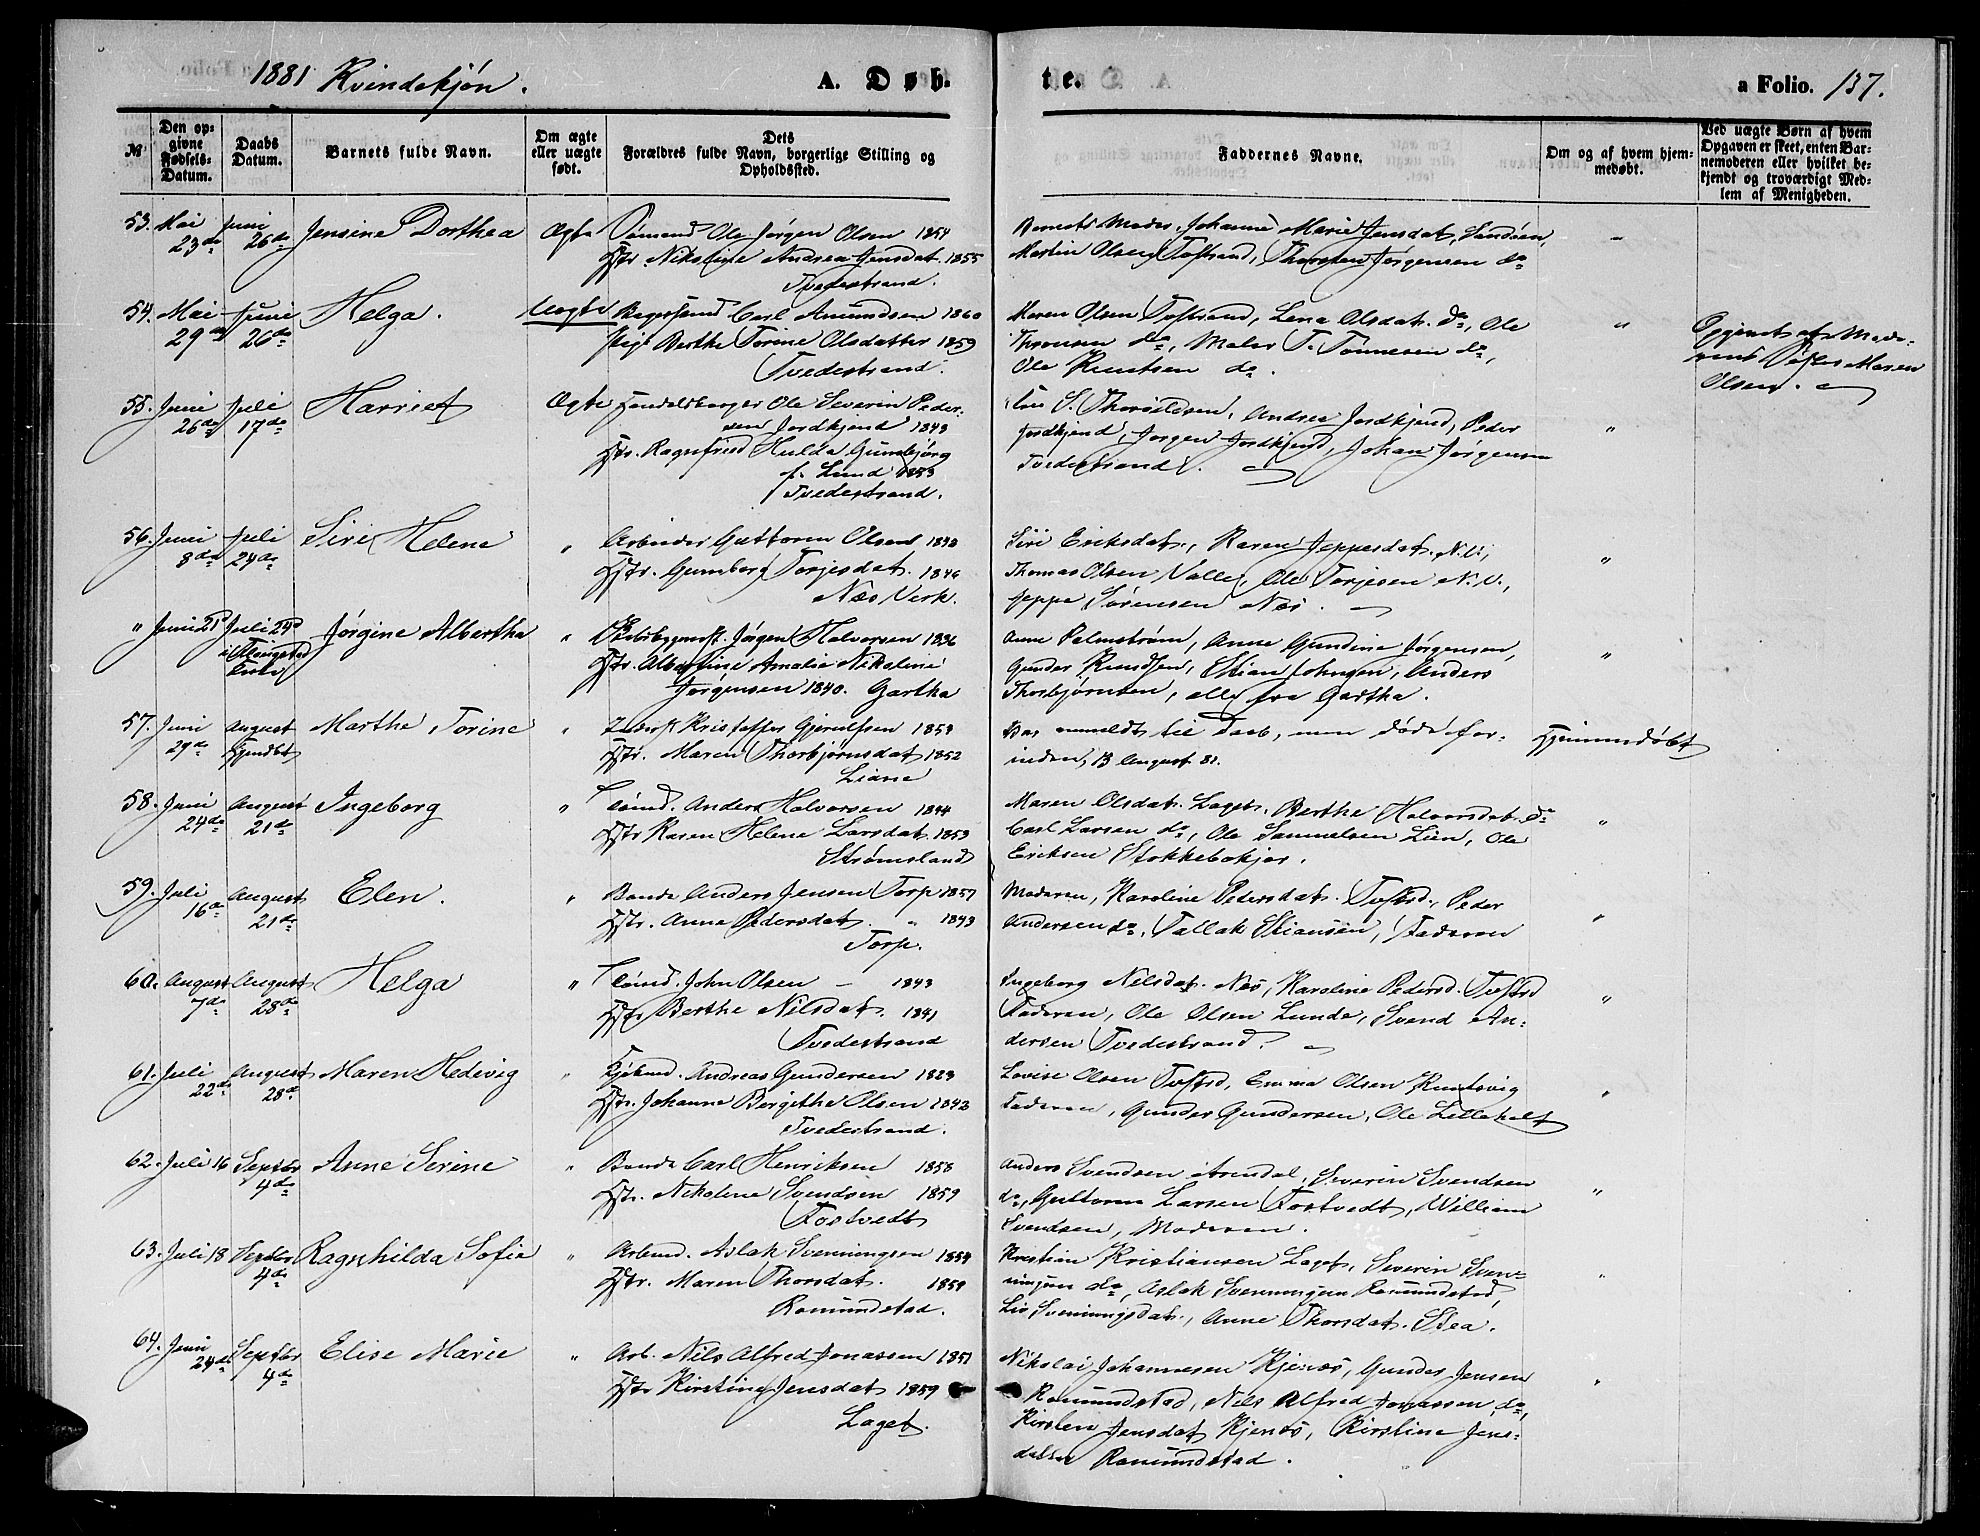 1881 Kvindekjøn.
A. Døb-
te.
a Folio. 137.
№
Den op-
givne
Fødsels-
Datum.
Daabs
Datum.
Barnets fulde Navn.
Om ægte
eller uægte
født.
Dets
Forældres fulde Navn, borgerlige Stilling og
Opholdssted.
Faddernes Navne.
Om og af hvem hjem-
medøbt.
Ved uægte Børn af hvem
Opgaven er skeet, enten Bar-
nemoderen eller hvilket be-
kjendt og troværdigt Med-
lem af Menigheden.
53. Mai 23de Juni 26de Jensine Dorthea Ægte Sømand Ole Jørgen Olsen 1854
Hstr. Nikoline Andrea Jensdat. 1855
Tvedestrand.
Barnets Moder, Johanne Marie Jensdat, Sandøen,
Martin Olsen Tvstrand, Thorsten Jørgensen do
54. Mai 29de Juni 26de Helga. Uægte Bagersvend Carl Amundsen 1860
Pige Berthe Torine Olsdatter 1859
Tvedestrand.
Maren Olsen Tvstrand, Lena Olsdat. do, Ole
Thronsen do, Maler T. Tønnesen do,
Ole Knutsen do.
"
Opgivet af Mode-
rens Søster Maren
Olsen.
55. Juni 26de Juli 17de Harriet Ægte Handelsborger Ole Severin Peder-
sen Jordkjend 1843
Hstr. Ragnfred Hulda Gunbjørg
f. Lund 1853
Tvedestrand.
S. Thorsildsen, Andrea Jordkjend, Peder
Jordkjend, Jørgen Jordkjend, Johan Jørgensen
Tvedestrand.
"
56. Juni 8de Juli 24de Siri Helene " Arbeider Guttorm Olsen
Hstr. Gunborg Torjesdat. 1846
Næs Verk.
Siri Eriksdat., Karen Jeppesdat. N.V.,
Thomas Olsen Valle, Ole Torjesen N.V.,
Jeppe Sørensen Næs.
"
" Juni 21 Juli 24d Jørgine Albertha " Skibsbygmst. Jørgen Halvorsen 1836
Hstr. Albertine Amalie Nikoline
Jørgensen 1840. Gartha
Anne Palmstrøm, Anne Gundine Jørgensen,
Gunder Knudsen, Stian Johnsen, Anders
Thorbjørnsen, alle fra Gartha.
"
57. Juni 29de August Hjemdbt Marthe Torine " Kristoffer Gjerulfsen
Hstr. Maren Thorbjørnsdat 1852
Liane
Var anmeldt til Daab, men døde for-
inden, 13 August 81.
Hjemmedøbt
58. Juni 24de August 21de Ingeborg " Tømd. Anders Halvorsen 1844
Hstr Karen Helene Larsdat. 1853
Strømsland
Maren Olsdat. Laget, Berthe Halvorsdat. do
Carl Larsen do, Ole Samuelsen Lien, Ole
Eriksen Stokkebokjer.
"
59. Juli 16de August 21de Elen. " Bonde Anders Jensen Torp 1857
Hstr. Anne Pedersdat. " 1843
Torp.
Moderen, Karoline Pedersdat. Tvstrd., Peder
Andersen do, Tallak Stiansen, Faderen
"
60. August 7de August 28de Helga " Tømd. John Olsen — 1843
Hstr Berthe Nilsdat. 1841
Tvedestrand
Ingeborg Nilsdat. Næs, Karoline Pedersd. Tvstrd
Faderen, Ole Olsen Lunde, Svend An-
dersen Tvedestrand.
"
61. Juli 22de August 28de Maren Hedevig " Andreas Gundersen 1823
Hstr. Johanne Bergithe Olsen 1842
Tvedestrand.
Lovise Olsen Tvstrd, Emma Olsen Knutsvig
Faderen, Gunder Gundersen, Ole Lilleholt
"
62. Juli 16 Septbr 4de Anne Serine " Bonde Carl Henriksen 1858
Hstr. Nikoline Svendsen 1859
Fostvedt
Anders Svendsen Arendal, Severin Svendsen
do, Guttorm Larsen Fostvedt, William
Svendsen, Moderen.
"
63. Juli 18 Septbr 4de Ragnhilda Sofie " Arbmd. Aslak Svenningsen 1854
Hstr. Maren Thorsdat. 1859
Ramundstad.
Kristian Kristiansen Laget, Severin Sven-
ningsen do, Aslak Svenningsen Ramundstad,
Liv Svenningsdat., Anne Thorsdat. Stea.
"
64. Juni 24de Septbr 4de Elise Marie " Arb. Nils Alfred Jonassen 1851
Hstr Kirstine Jensdat 1859
Laget.
Nikolai Johannesen Kjenes, Gunder Jensen
Ramundstad, Nils Alfred Jonassen do,
Kirsten Jensdat Kjenes, Kirstine Jens-
datter Ramundstad.
"